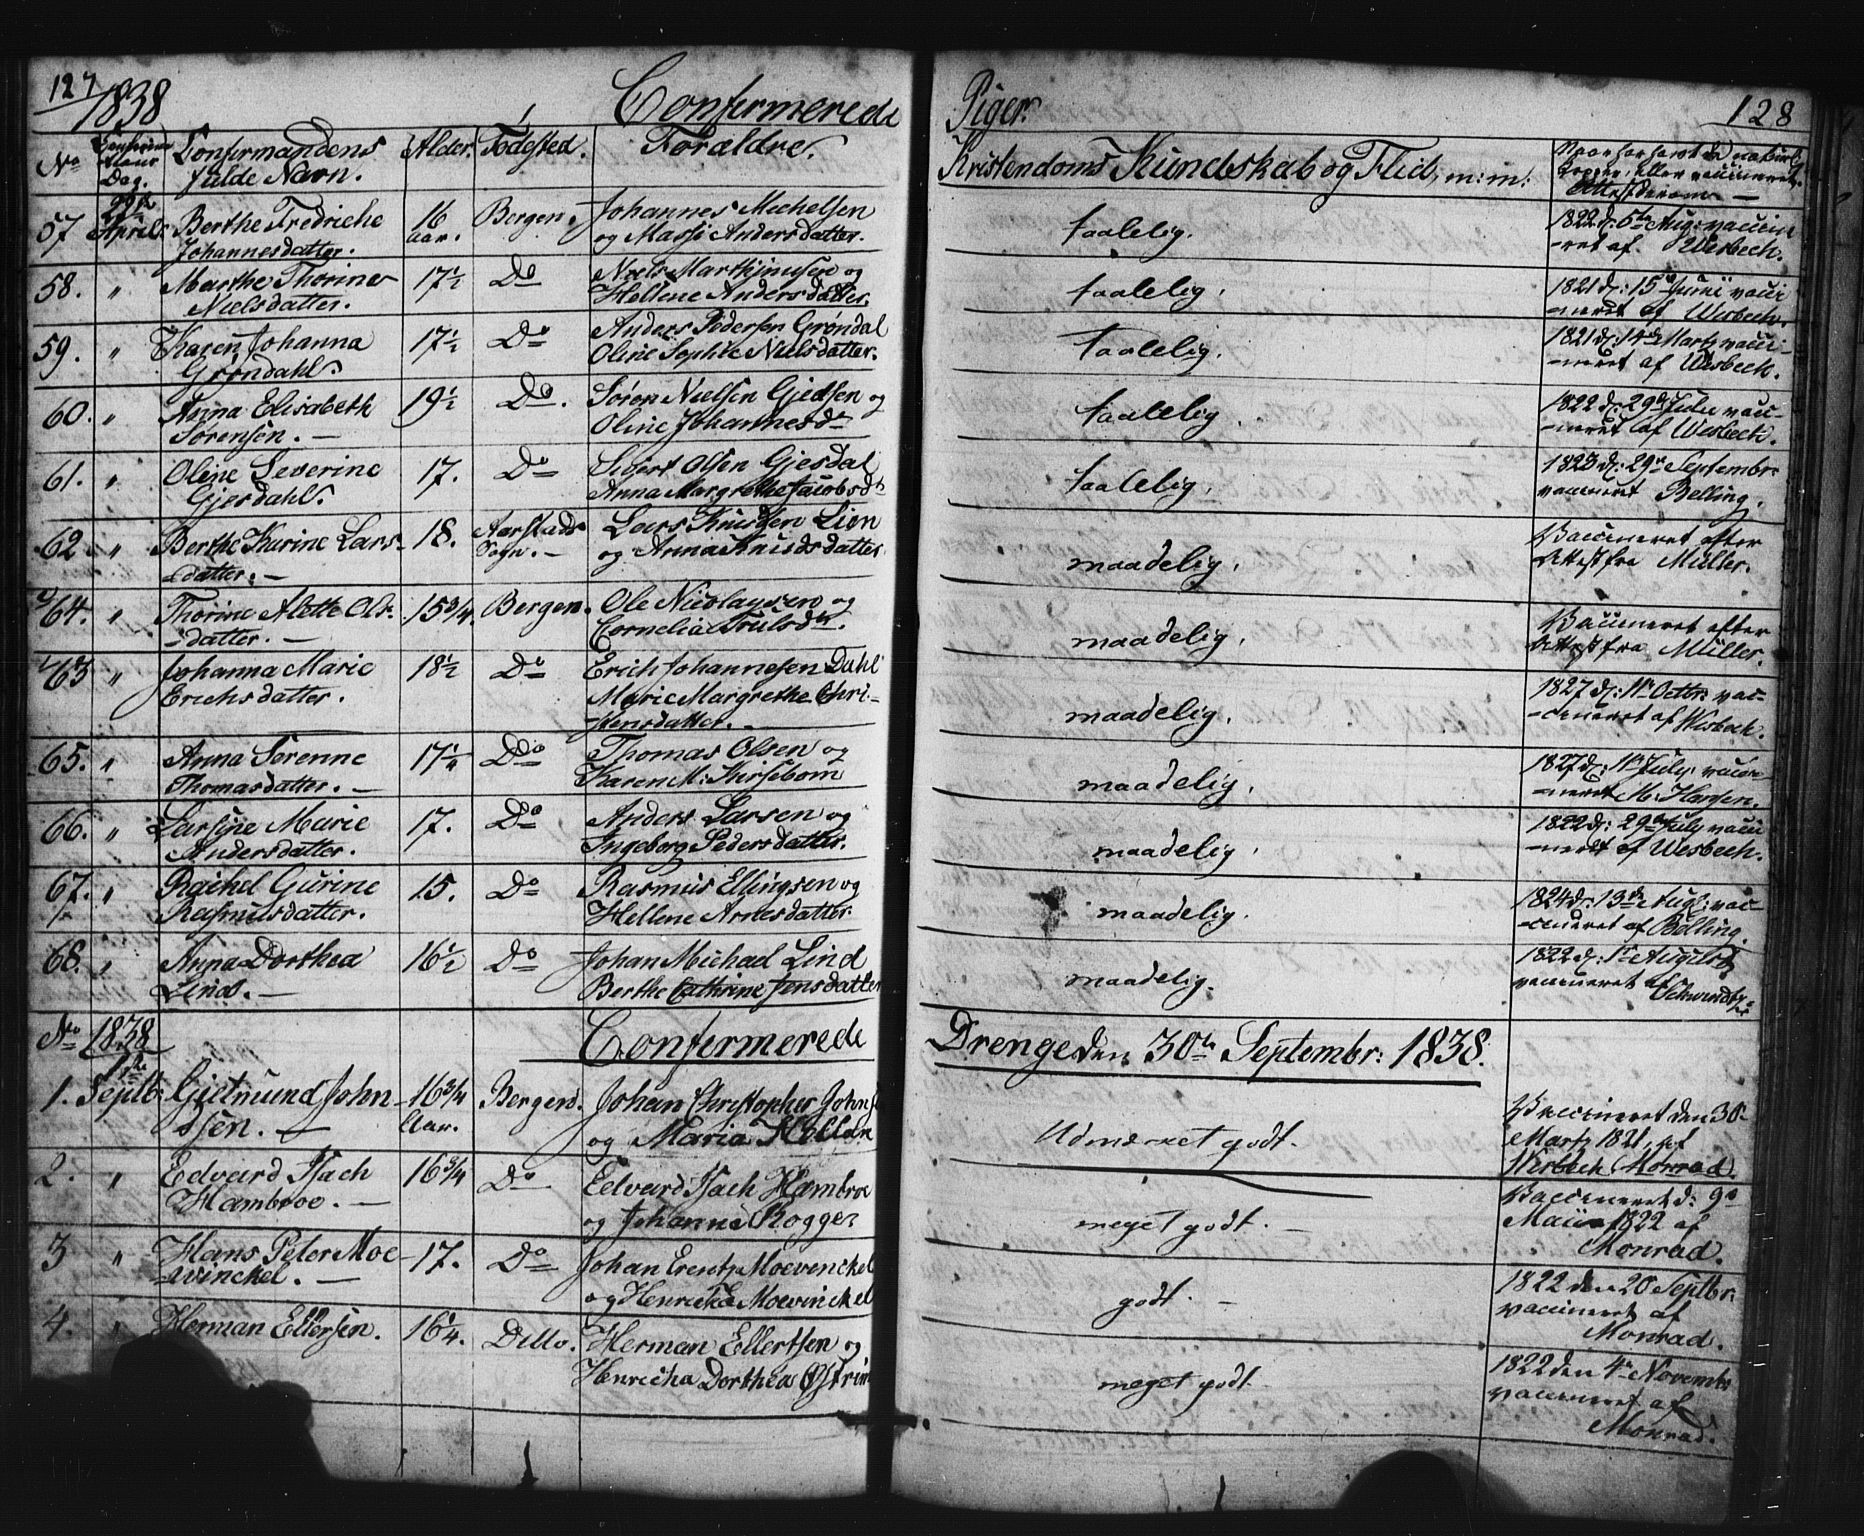 127
1838
Confermerede
No
Confirma-
tions
Dag.
Confirmandens
fulde Navn.
Alder.
Fødested.
Forældre.
57
22de
Aprils
Berthe Fredriche
Johannesdatter.
16
aar.
Bergen.
Johannes Michelsen
og Massi Andersdatter.
58.
"
Marthe Thorine
Nielsdatter.
17½
Do
Niels Marthinusen og
Hellene Andersdatter.
59.
"
Karen Johanna
Grøndahl.
17½
Do
Anders Pedersen Grøndal
Oline Sophie Nielsdatter.
60.
"
Anna Elisabeth
Sørensen. —
19½
Do.
Søren Nielsen Gjedsen og
Oline Johannesdr
61.
"
Oline Severine
Gjesdahl.
17.
Do
Sivert Olsen Gjesdal
Anna Margrethe Jacobsdr
62
"
Berthe Karine Lars-
datter. —
18.
Aarstads
Sogn. —
Lars Knudsen Lien
og Anna Knudsdatter
64.
"
Thorine Alette Ols-
-datter. —
15¾
Bergen.
Ole Nicolaysen og
Cornelia Trulsdr.
63
"
Johanna Marie
Erichsdatter.
18½
Do
Erich Johannesen Dahl
Marie Margrethe Chri-
stensdatter. —
65.
"
Anna Sørenne
Thomasdatter. —
17¼
Do
Thomas Olsen og
Karen M: Kirsebom
66.
"
Larsine Marie
Andersdatter.
17.
Do
Anders Larsen og
Ingeborg Pedersdatter.
67.
"
Rachel Gurine
Rasmusdatter.
15.
Do
Rasmus Ellingsen og
Hellene Arnesdatter
68.
"
Anna Dorthea
Lind. —
16½
Do
Johan Michael Lind
Berthe Cathrine Jensdatter
No
1838
Confermerede
1.
Septb:
Gietmund John-
sen. —
16¾
Aar.
Bergen.
Johan Christopher Johns
og Maria
2.
"
Edvard Isach
Hambroe. —
16¾
Do
Edvard Isach Hambroe
og Johanne Rogge
3
"
Hans Peter Moe-
winckel. —
17.
Do
Johan Erentz Moevinckel
og Henricka Moevinckel
4.
"
Herman Ellersen.
16¼.
Ditto.
Herman Ellertsen og
Henricka Dorthea
Piger.
128
Kristendoms Kundskab og Flid, m: m:
Naar har havt de naturl:
Kopper, eller vaccineret.
Attest derom —
taalelig.
1822 d: 5te Aug: vaccin
-ret af Wesbech.
taalelig.
1821 d: 15 Junii vacci
neret af Wesbech.
taalelig.
1821 d: 14de Martz vacci-
-neret af Wesbech.
taalelig.
1822 d: 29de Julii vac-
-neret af Wesbech.
taalelig.
1823 d: 29de Septembr:
vaccineret Belling.
maadelig.
Vaccineret efter
Attest fra Müller.
maadelig.
Vaccineret efter
Attest fra Müller.
maadelig.
1827 d: 11te Octbr: vac-
-cineret af Wesbech.
maadelig.
1827 d: 11te July vacci-
-neret M: Hansen.
maadelig.
1822 d: 29de July vacci
neret af Wesbech.
maadelig.
1824 d: 13de Augt: vac-
-cineret af Belling.
maadelig.
1822 d: 1te August
vaccineret af
Drenge den 30te Septembr: 1838.
Udmærket godt.
Vaccineret den 30te
Martz 1821 af
Wesbech Monrad.
meget godt. —
Vaccineret d: 9de
Maii 1822 af
Monrad.
godt. —
1822 den 20 Septbr:
vaccineret af
Monrad.
meget godt
1822 den 4de Novembr
vaccineret af
Monrad.